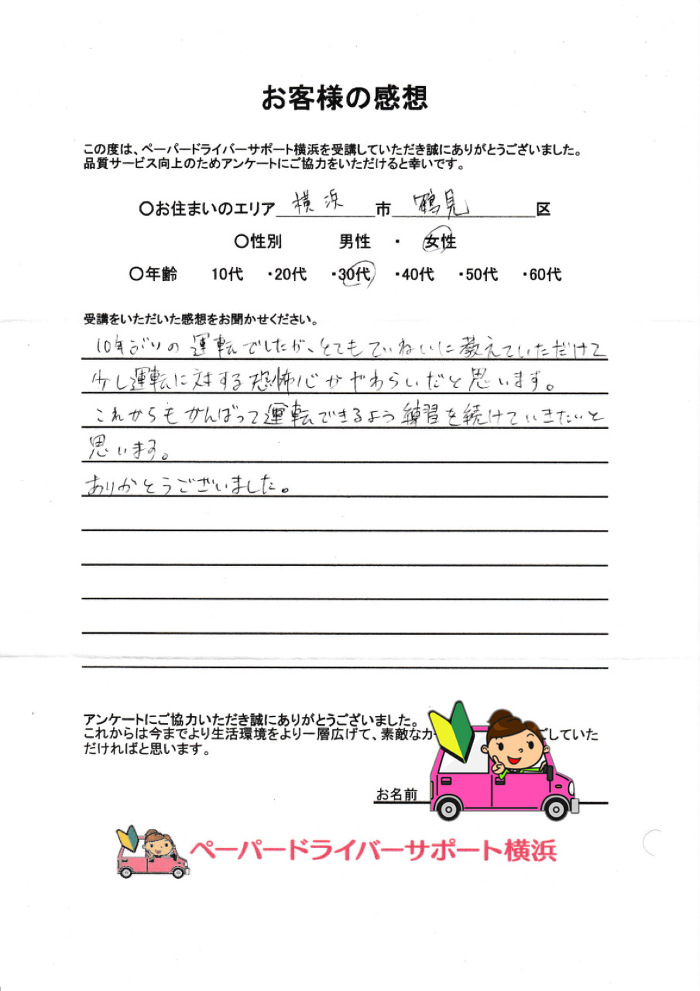 お客様の感想
この度は、ペーパードライバーサポート横浜を受講していただき誠にありがとうございました。
品質サービス向上のためアンケートにご協力をいただけると幸いです。
〇お住まいのエリア 横浜 市 鶴見 区
〇性別 男性 ・ 女性
〇年齢 10代 ・20代 ・30代 ・40代 ・50代 ・60代
受講をいただいた感想をお聞かせください。
10年ぶりの運転でしたが、とてもていねいに教えていただけて
少し運転に対する恐怖心がやわらいだと思います。
これからもがんばって運転できるよう練習を続けていきたいと
思います。
ありがとうございました。
アンケートにご協力いただき誠にありがとうございました。
これからは今までより生活環境をより一層広げて、素敵なカ ごしていた
だければと思います。
お名前
ペーパードライバーサポート横浜